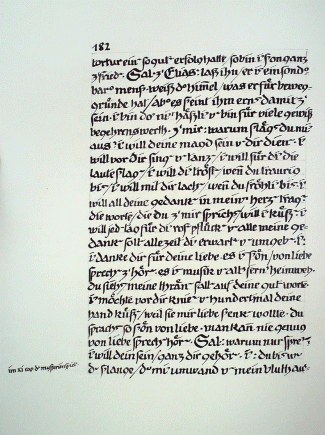 182
tortur ein so gut erfolg hatte, so bin i' schon ganz
z'fried'. Sal. z' Elias: laß ihn, er i' ein sond'
bar' mens'. weiß d' him'el, was er für beweg-
gründe hat, ab' es seint ihm ern' damit z'
sein. i' bin do' ni' häßli' v' bin für viele gewiß
begehrenswerth. z' mir: warum släg' du mi'
aus? i' will deine magd sein v' dir dien'. i'
will vor dir sing' v' tanz', i' will für di' die
laute slag', i' will di' tröst', wen' du traurig
bi', i' will mit dir lach', wen' du fröhli' bi'. i'
will all deine gedank' in mein' herz' trag'.
die worte, die du z' mir sprich', will i' küß'. i'
will jed' tag für di' ros' pflück' v' alle meine ge-
dank' soll' allezeit di' erwart' v' umgeb'. I:
i' danke dir für deine liebe. es i' sön, von liebe
sprech' z' hör'. es i' musik v' alt' fern' heimweh.
du sieh', meine thrän' fall' auf deine gut' worte.
i' möchte vor dir knie' v' hundertmal deine
hand küß', weil sie mir liebe schenk' wollte. du
sprich' so sön von liebe. man kan' nie genug
von liebe sprech' hör'. Sal: warum nur spre'
i' will dein sein, ganz dir gehör'. I: du bi' wie
d' slange, d' mi' umwand v' mein blut aus-